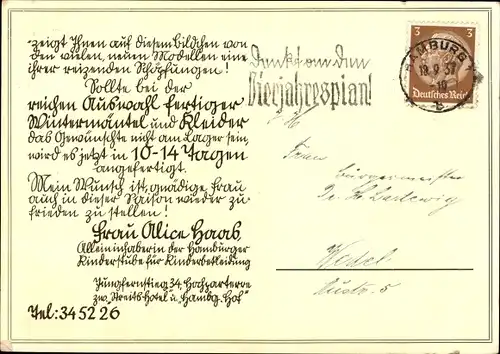 zeigt Ihnen auf diesem Bildchen von
den vielen, neuen Modellen eine
ihrer reizenden Schöpfungen!
Sollte bei der
reichen Auswahl fertiger
Wintermäntel und Kleider
das Gewünschte nicht am Lager sein,
wird es jetzt in 10-14 Tagen
angefertigt.
Mein Wunsch ist, gnädige Frau
auch in dieser Saison wieder zu-
frieden zu stellen!
Frau Alice Haas
Alleininhaberin der Hamburger
Kinderstube für Kinderbekleidung
Jungfernstieg 34, Hochparterre
zw. "Streits Hotel" u. "Hambg. Hof"
Tel: 34 52 26
Denkt an den
Vierjahresplan!
HAMBURG
18.9.37
3 3
Deutsches Reich
Frau
Bürgermeister
Dr.
Wesel